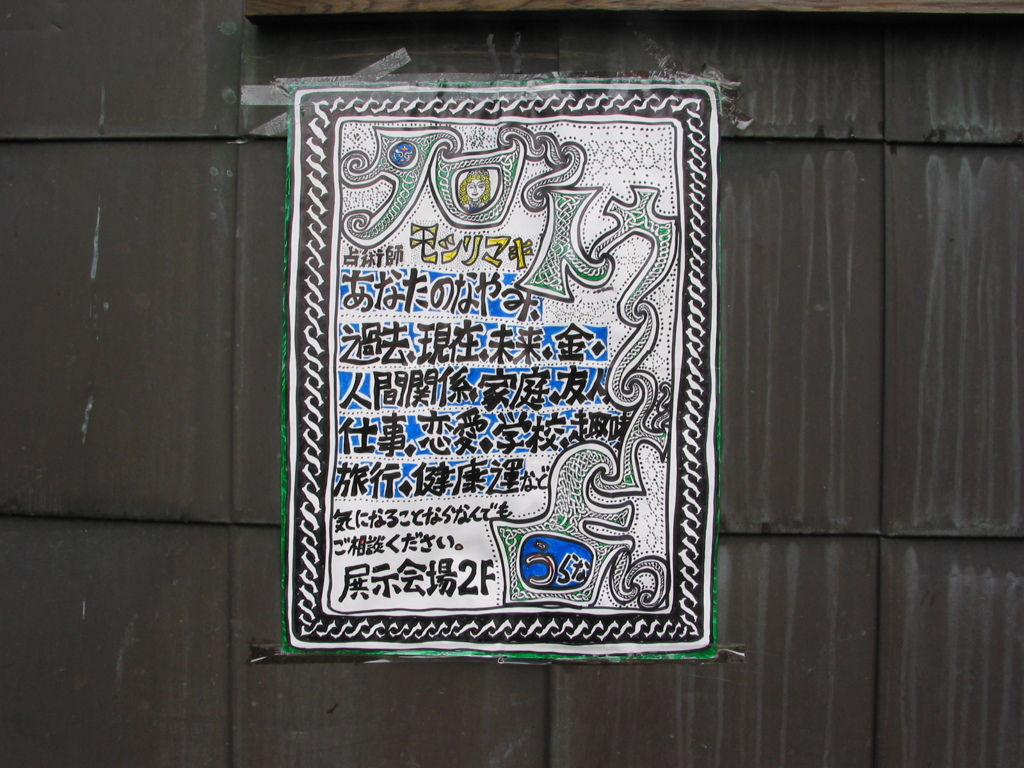 タロット
占い
うらな
占術師 モンリマキ
あなたのなやみ、
過去、現在、未来、金、
人間関係、家庭、友人
仕事、恋愛、学校、趣味
旅行、健康運など
気になることならなんでも
ご相談ください。
展示会場2F